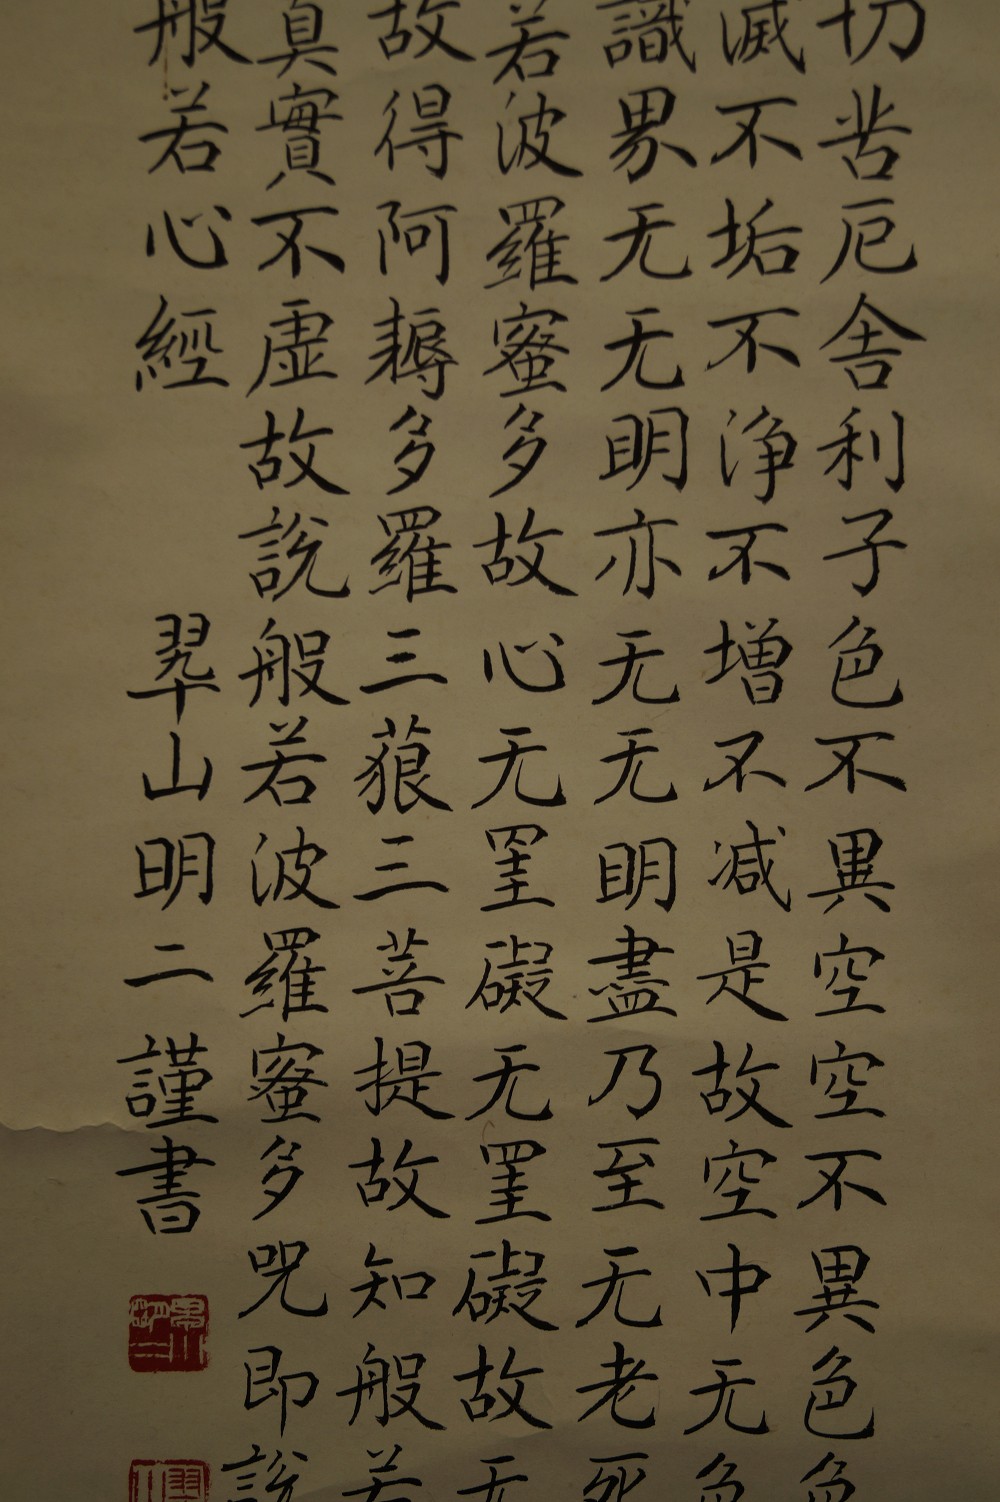 切苦厄舍利子色不異空空不異色色
滅不垢不淨不增不減是故空中无色
識界无无明亦无无明盡乃至无老死
若波羅蜜多故心无罣礙无罣礙故无
故得阿耨多羅三藐三菩提故知般若
真實不虛故說般若波羅蜜多咒即說
般若心經
翠山明二謹書